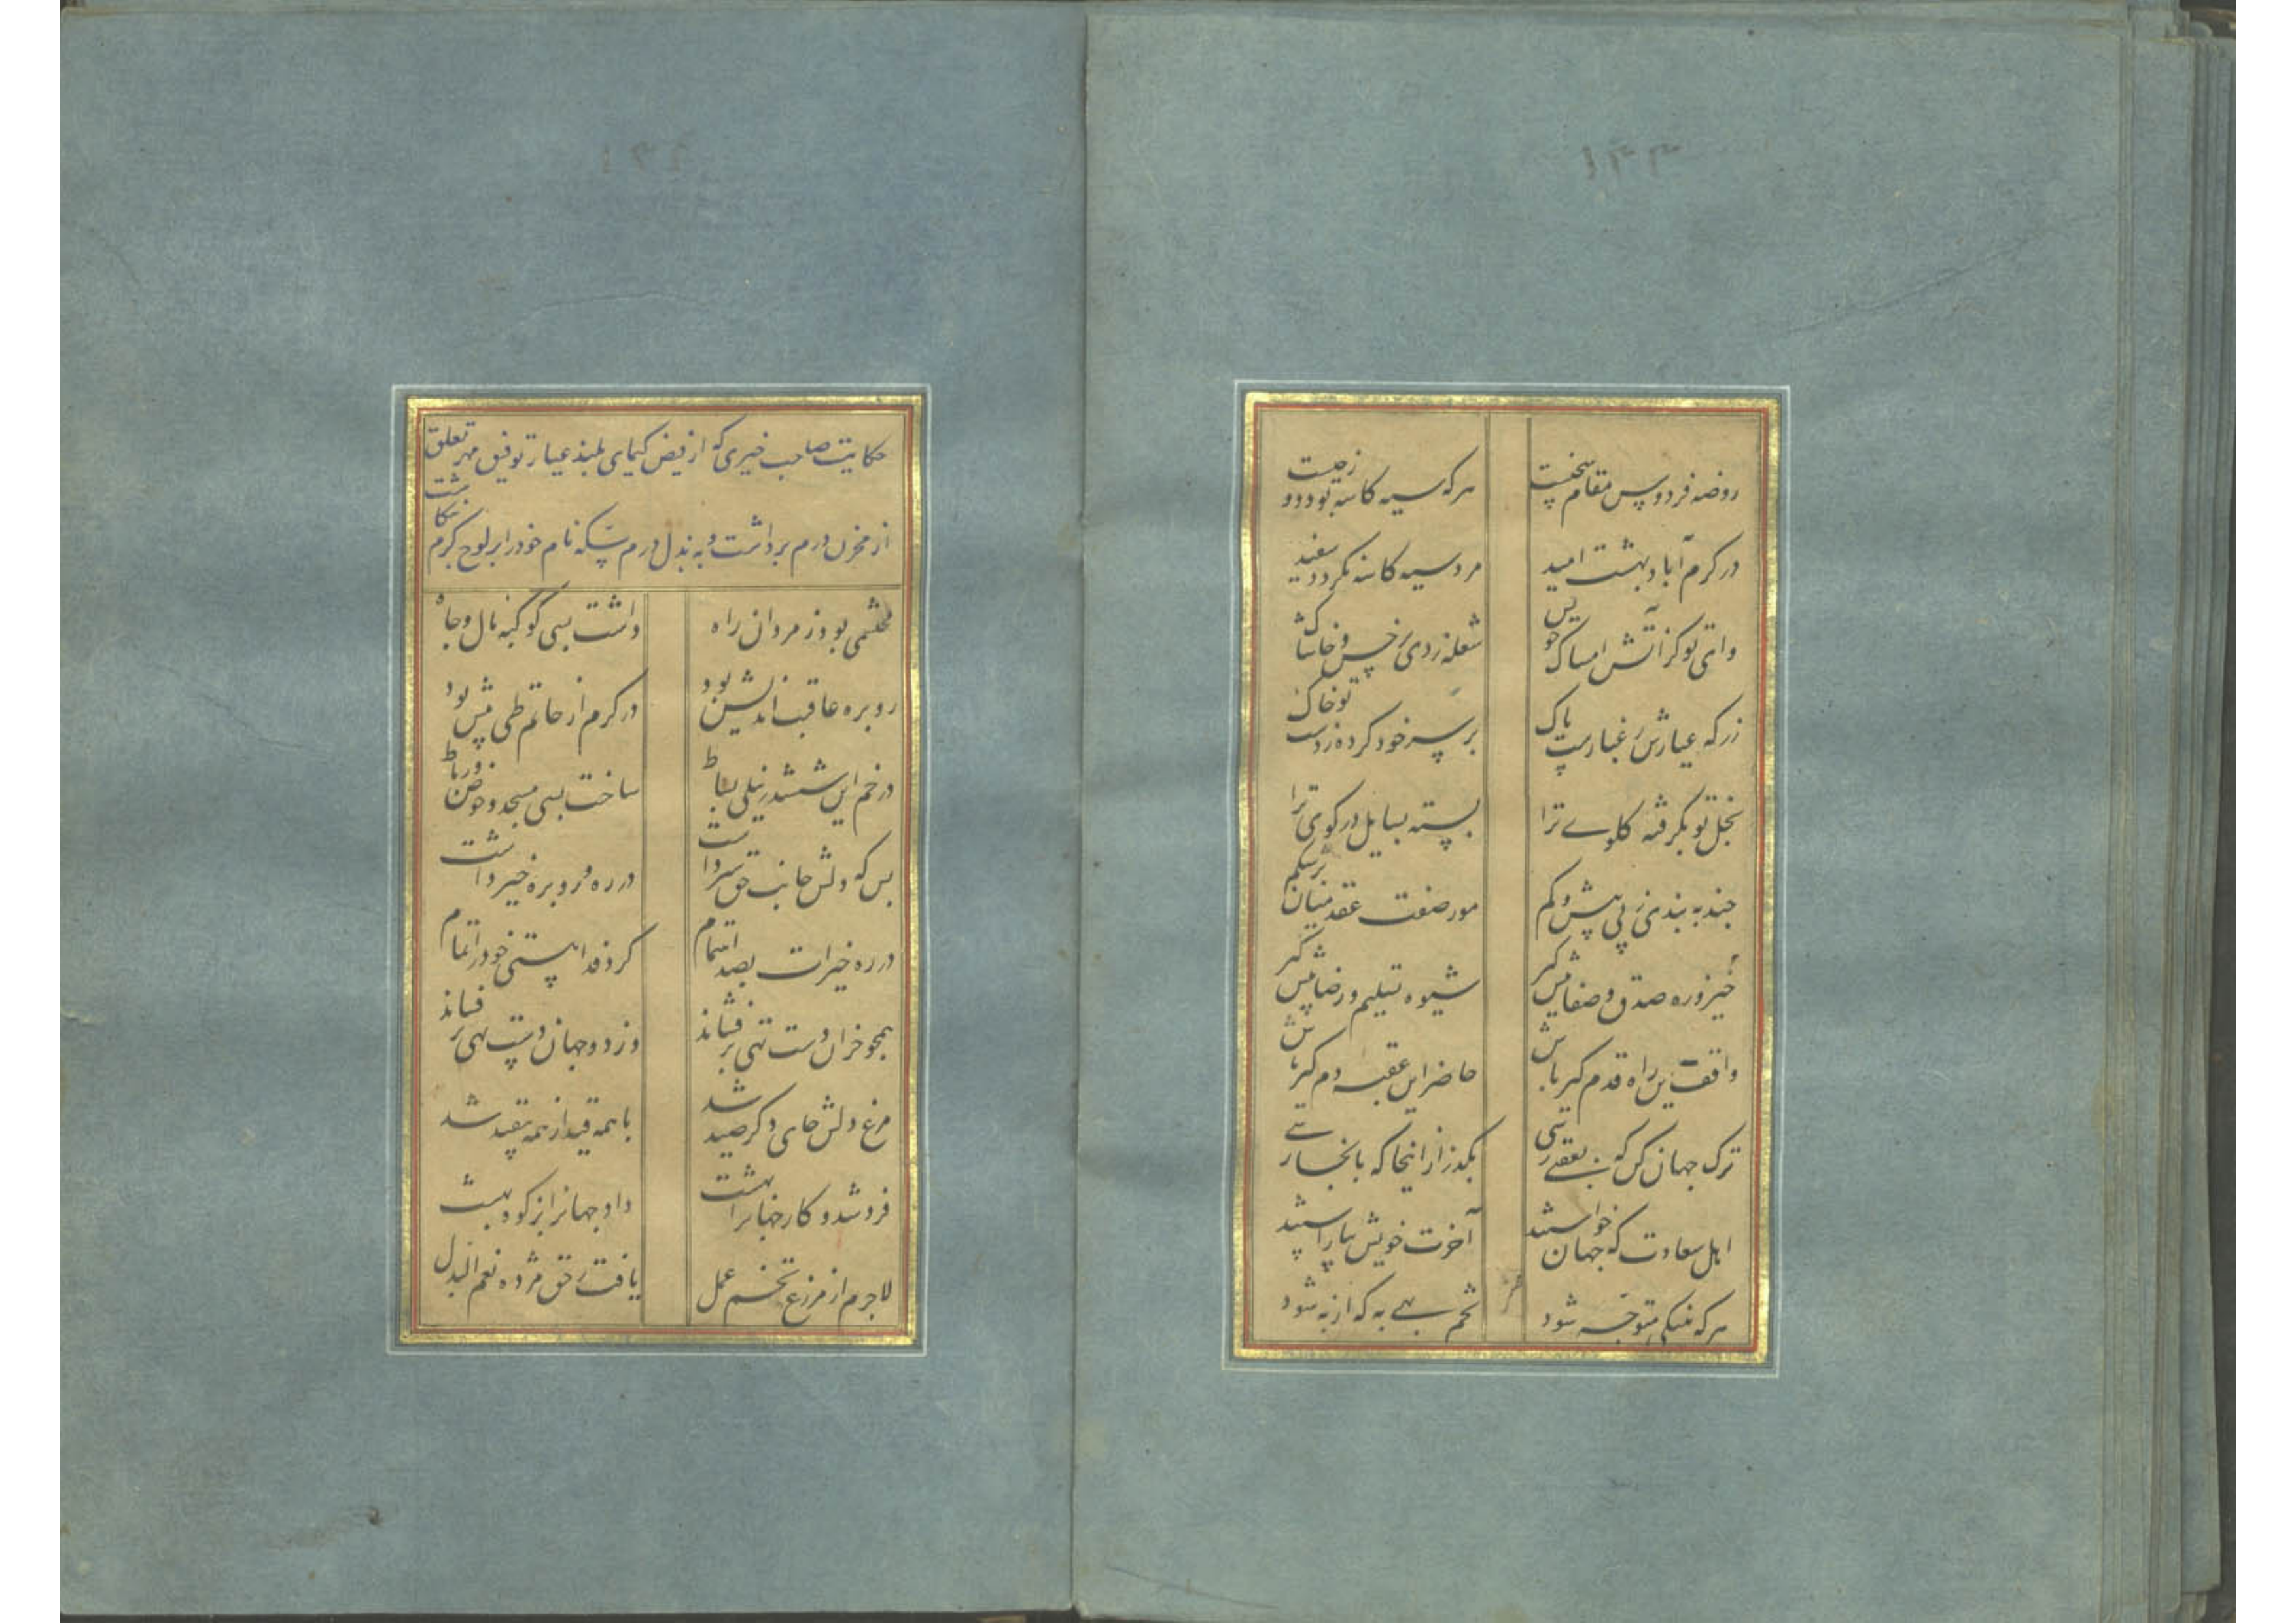 ۱۳۳
روضه فردوس مقام سخیست
هرکه سیه کاسه بود دوزخیست
در کرم آباد بهشت امید
مرد سیه کاسه نگردد سفید
وای تو کز آتش امساک خویش
شعله زدی بر خس و خاشاک
زر که عیارش ز غبارست پاک
بر سر خود کرده ز دست تو خاک
بخل تو بگرفته کلوی ترا
بسته بسایل در کوی ترا
چند به بندی ز پی بیش و کم
مور صفت عقد میان بر شکم
خیز و ره صدق و صفا پیش گیر
شیوه تسلیم و رضا پیش گیر
واقف این راه قدم گیر باش
حاضر این عقبه دم گیر باش
ترک جهان کن که بعقبی رسی
بگذر از اینجا که بانجا رسی
اهل سعادت که جهان خواستند
آخرت خویش بیاراستند
هرکه به نیکی متوجه شود
تخم بهی به که ازو به شود
حکایت صاحب خیری که از فیض کیمیای بلند عیار توفیق مهر تعلق
از مخزن درم برداشت و به بذل درم سکه نام خود را بر لوح کرم نگاشت
محتشمی بود ز مردان راه
داشت بسی کوکبه مال و جاه
رو بره عاقبت اندیش بود
در کرم از حاتم طی پیش بود
در خم این ششدر نیلی بساط
ساخت بسی مسجد و حوض و رباط
بس که دلش جانب حق سیر داشت
در ره و رو بره خیر داشت
در ره خیرات بصد اهتمام
کرد فدا هستی خود را تمام
همچو خزان دست تهی بر فشاند
وز دو جهان دست تهی بر فشاند
مرغ دلش جای دگر صید شد
با همه قید از همه بیقید شد
فرد شد و کار جهان را بهشت
داد جهان را ز کوه بهشت
لاجرم از مزرع تخم عمل
یافت ز حق مژده نعم البدل